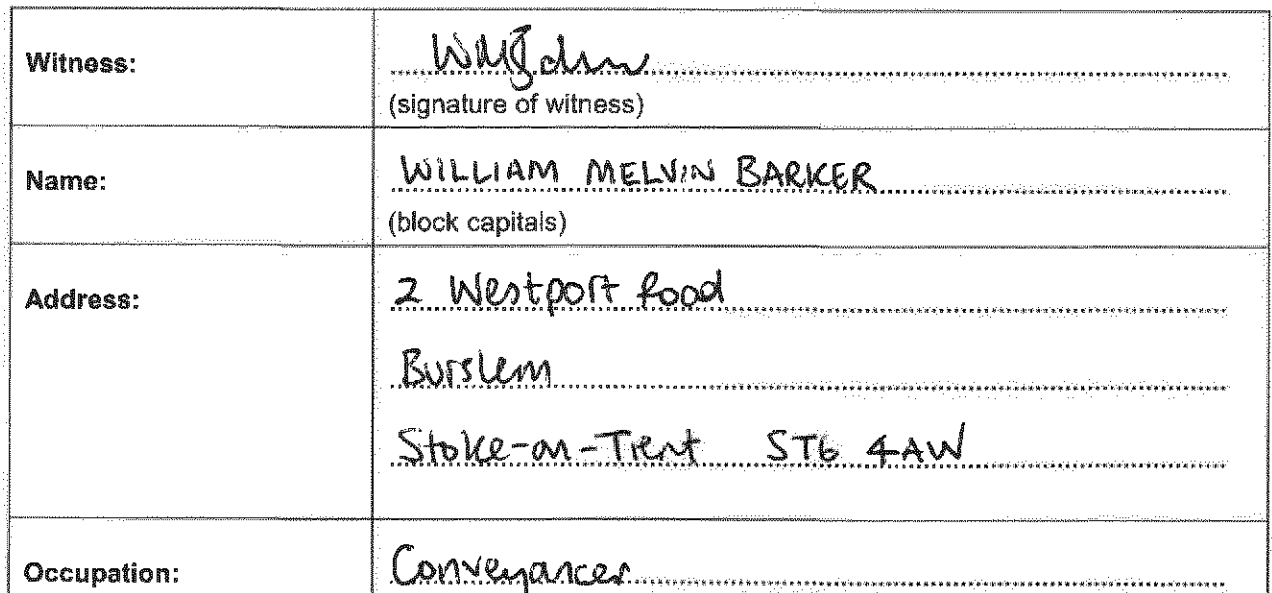 Witness:
(signature of witness)
Name: WILLIAM MELVIN BARKER
(block capitals)
Address: 2 Westport Road
Burslem
Stoke-on-Trent ST6 4AW
Occupation: Conveyancer